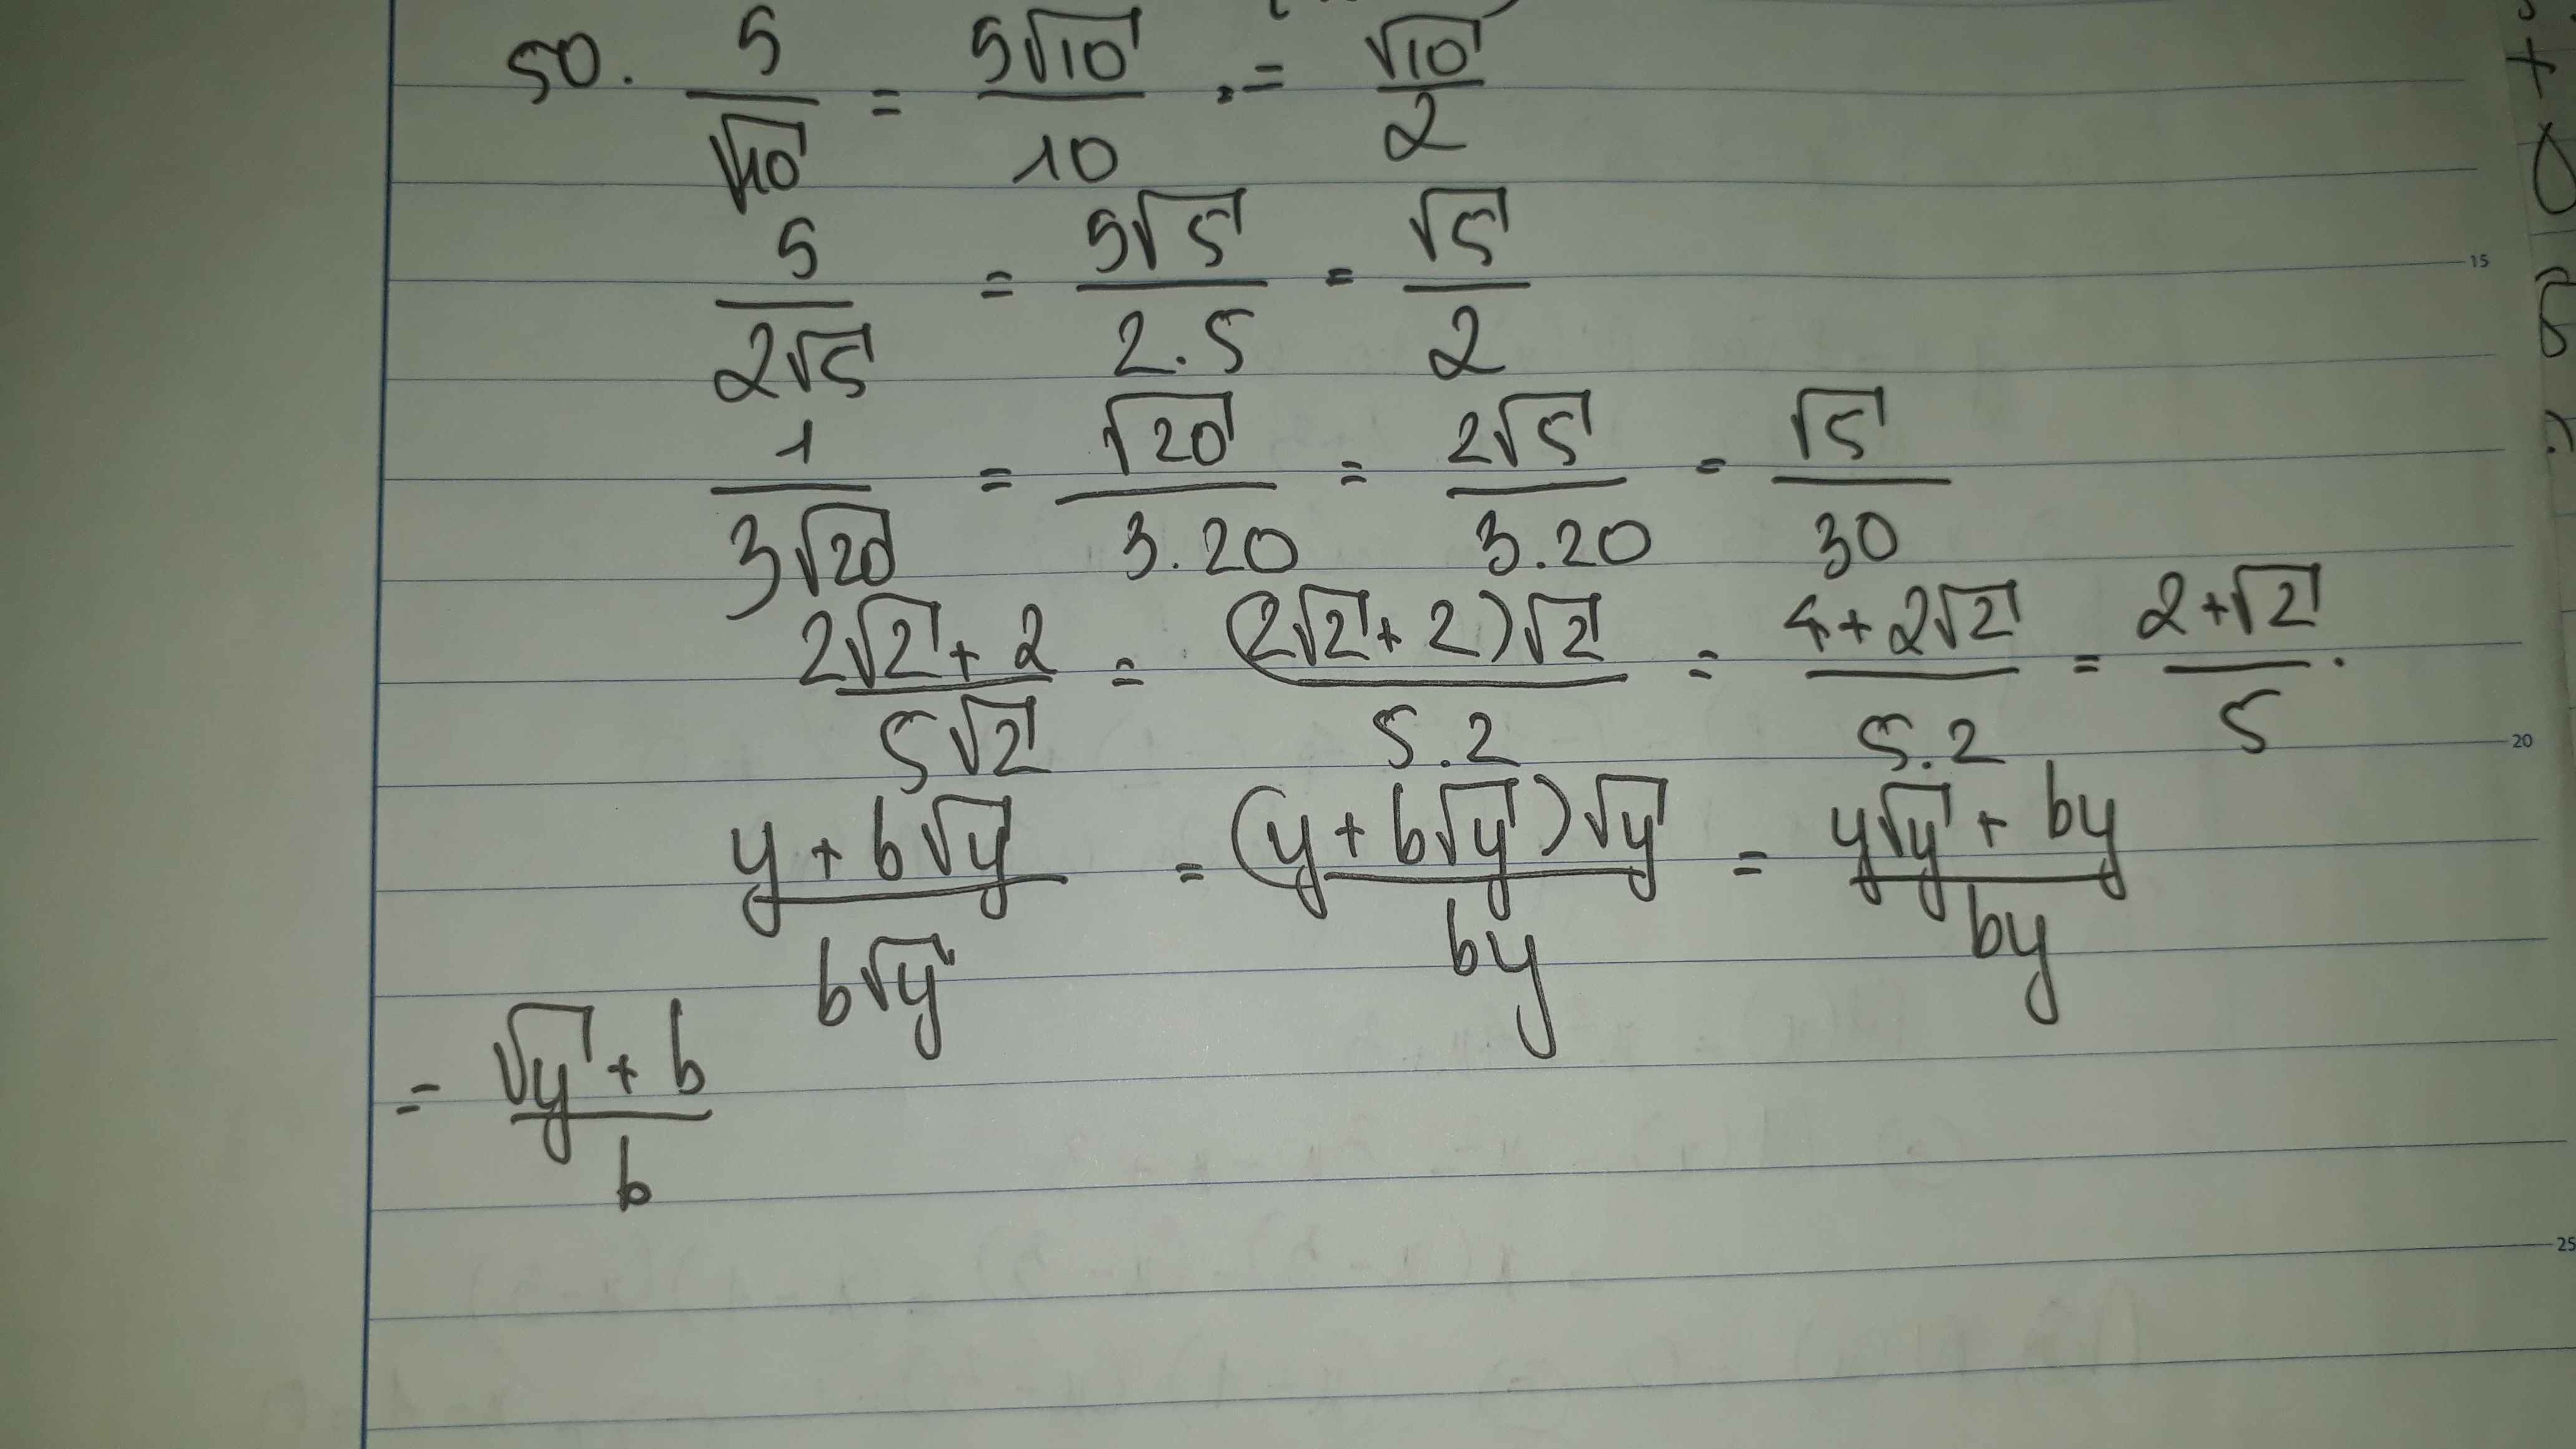 50. 5/√10 = 5√10/10 .= √10/2
5/2√5 = 5√5/2.5 = √5/2
1/3√20 = √20/3.20 = 2√5/3.20 = √5/30
2√2+2/5√2 = (2√2+2)√2/5.2 = 4+2√2/5.2 = 2+√2/5.
y+b√y/b√y = (y+b√y)√y/by = y√y+by/by
= √y+b/b
15
20
25